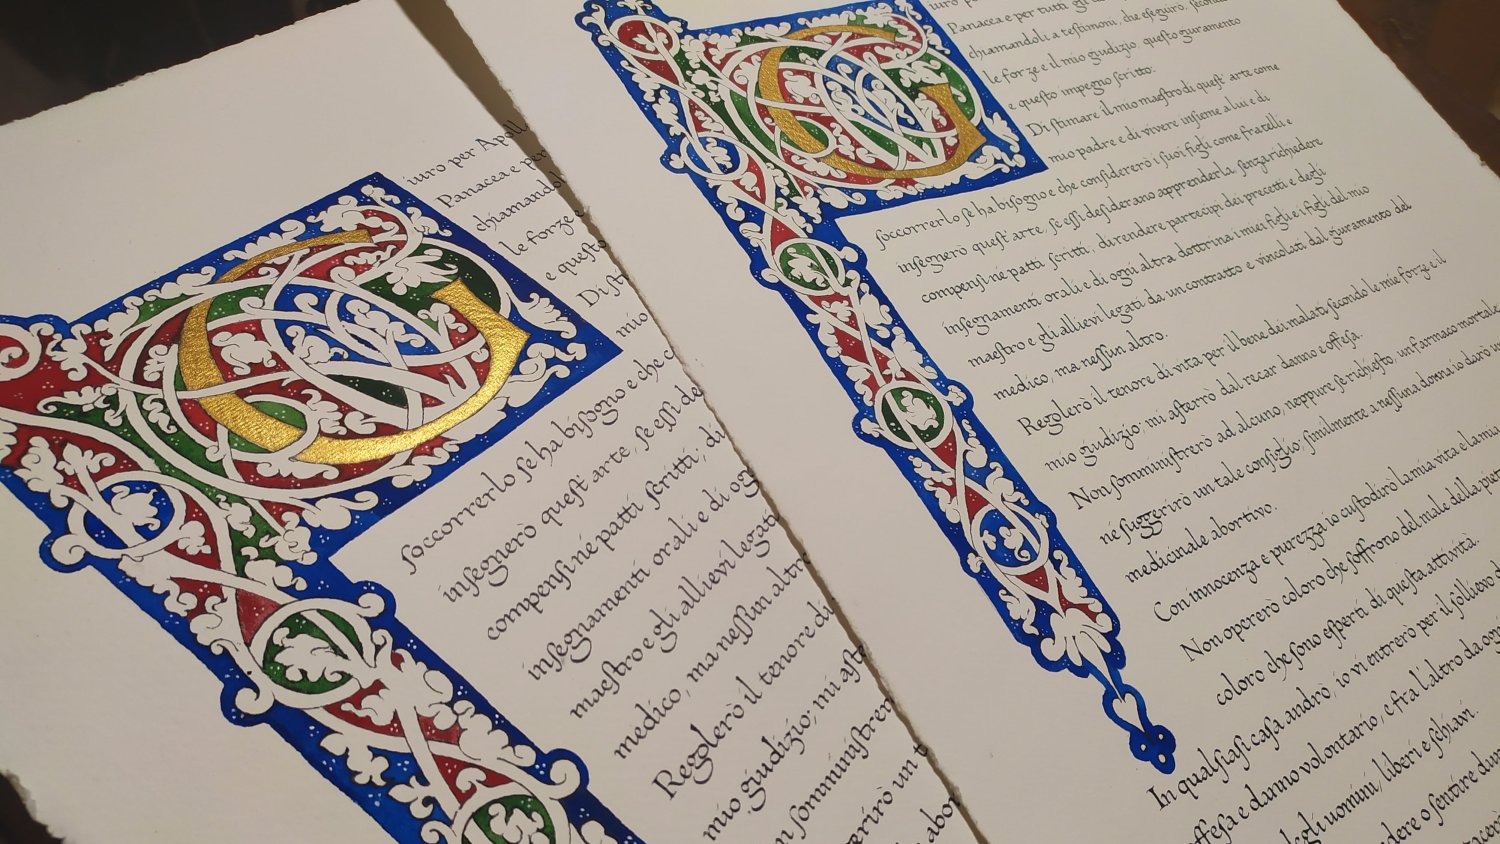 G
iuro per Apoll
Panacea e per
chiamandol
le forze e
e questo
Di st
mio
soccorrerlo se ha bisogno e che c
insegnerò quest'arte, se essi de
compensi né patti scritti; di
insegnamenti orali e di og
maestro e gli allievi legati
medico, ma nessun altro
Regolerò il tenore di
mio giudizio; mi aste
n somministrer
erirò un t
abor
G
iuro
Panacea e per tutti gli
chiamandoli a testimoni, che eseguirò, secondo
le forze e il mio giudizio, questo giuramento
e questo impegno scritto:
Di stimare il mio maestro di quest'arte come
mio padre e di vivere insieme a lui e di
soccorrerlo se ha bisogno e che considererò i suoi figli come fratelli e
insegnerò quest'arte, se essi desiderano apprenderla, senza richiedere
compensi né patti scritti, di rendere partecipi dei precetti e degli
insegnamenti orali e di ogni altra dottrina i miei figli e i figli del mio
maestro e gli allievi legati da un contratto e vincolati dal giuramento del
medico, ma nessun altro.
Regolerò il tenore di vita per il bene dei malati secondo le mie forze e il
mio giudizio; mi asterrò dal recar danno e offesa.
Non somministrerò ad alcuno, neppure se richiesto, un farmaco mortale
né suggerirò un tale consiglio; similmente a nessuna donna io darò un
medicinale abortivo.
Con innocenza e purezza io custodirò la mia vita e la mia
Non opererò coloro che soffrono del male della piet
coloro che sono esperti di questa attività.
In qualsiasi casa andrò, io vi entrerò per il sollievo d
offesa e danno volontario, e fra l'altro da ogni
degli uomini, liberi e schiavi.
edere o sentire dur
tacerò